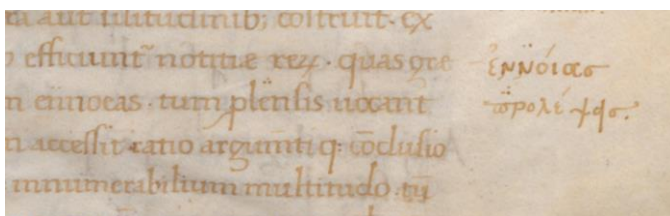 aut similitudinib; costruit. ex
efficiunt̃ notitiæ reꝝ. quas gre
ennoeas. tum p̱lensis uocant
accessit ratio argum̃ti q; c̄clusio
innumerabilium multitudo. tū
ἐννόιασ
προλέψισ.